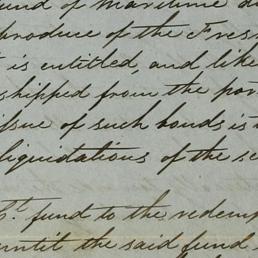 und of Maritime du
produce of the Fres
t is entitled, and like
shipped from the por
issue of such bonds is
liquidations of the se
Ct. fund to the redemp
until the said fund